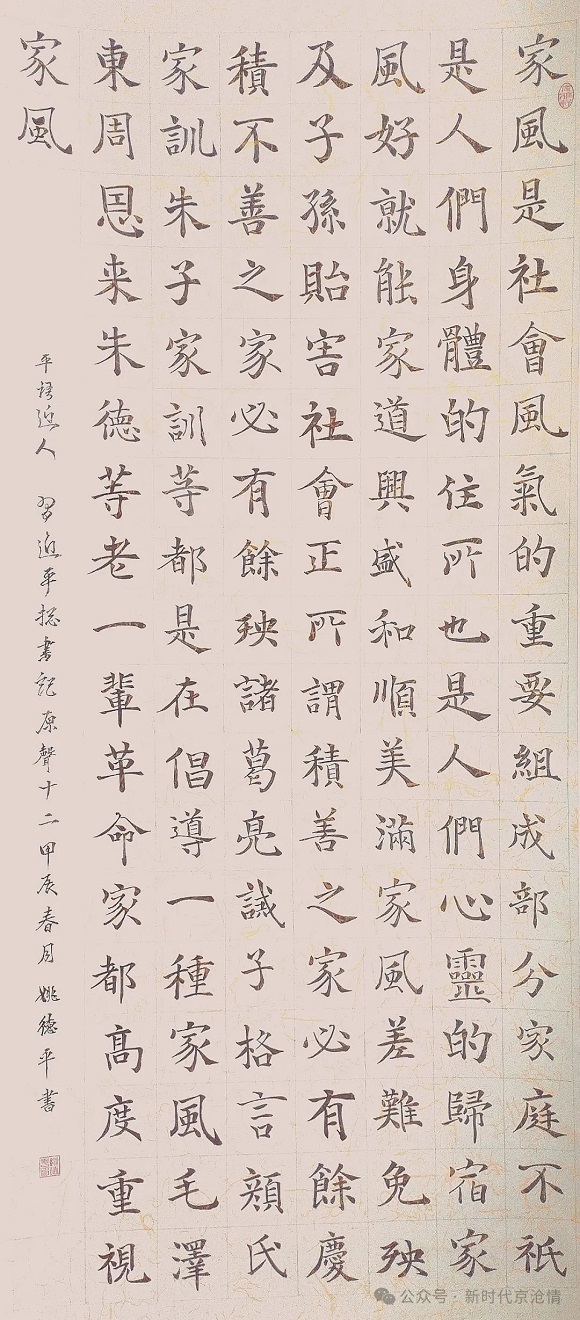 家風是社會風氣的重要組成部分家庭不祇
是人們身體的住所也是人們心靈的歸宿家
風好就能家道興盛和順美滿家風差難免殃
及子孫貽害社會正所謂積善之家必有餘慶
積不善之家必有餘殃諸葛亮誡子格言顏氏
家訓朱子家訓等都是在倡導一種家風毛澤
東周恩来朱德等老一輩革命家都高度重視
家風
平語近人 習近平總書記原聲十二甲辰春月姚德平書
公众号 · 新时代京沧情